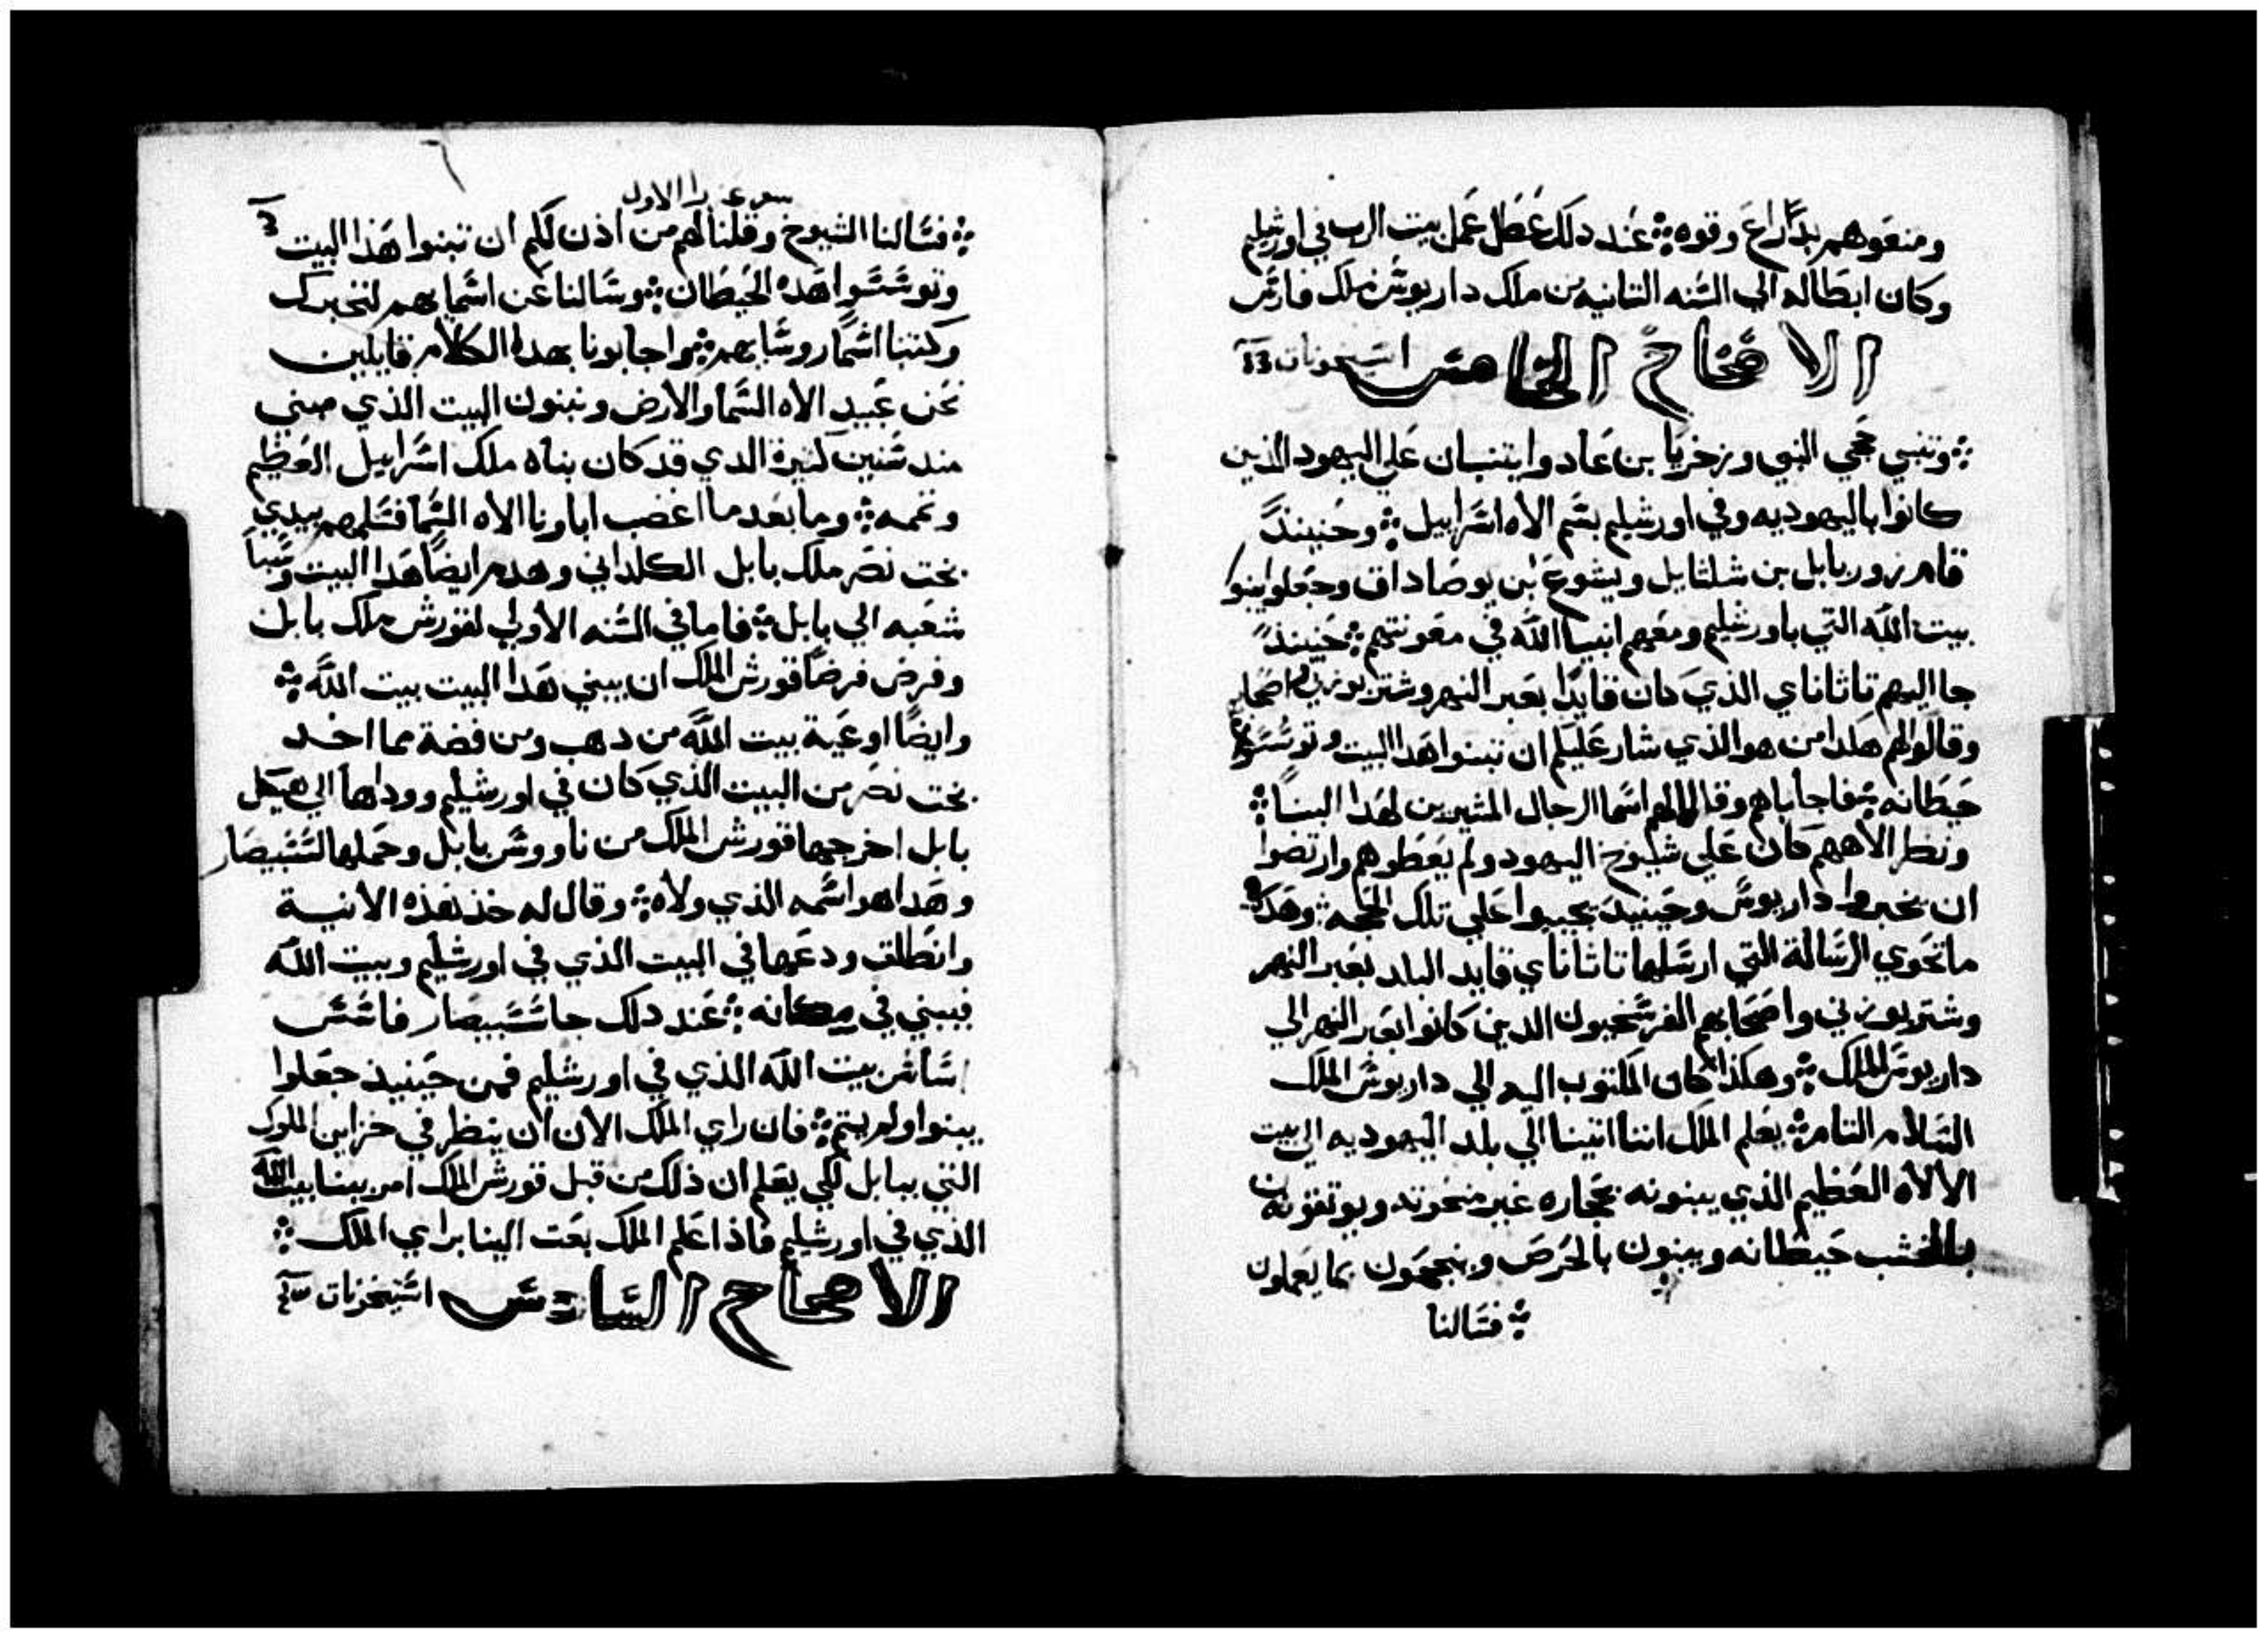 ومنعوهم بدراع وقوه ܀ عند دلك عطل عمل بيت الرب في اورشليم
وكان ابطاله الي السنه التانيه من ملك داريوش ملك فارس
الاصحاح الخامس استيخونات
܀ وتنبي حجي النبي وزخريا بن عادوا يتنبان علي اليهود الذين
كانوا باليهوديه وفي اورشليم بسم الاه اسراييل ܀ وحنيندً
قام زوربابل بن شلتايل ويشوع بن يوصاداق وجعلوا يبنوا
بيت الله التي باورشليم ومعهم انبيا الله في معونتهم ܀ حنيندً
جا اليهم تاتاناي الذي كان قايدا بعبر النهر وشتربوزني واصحابهم
وقالوا لهم هكدا من هو الذي شار عليكم ان تبنوا هدا البيت وتوسسوا
حيطانه ܀ فاجاباهم وقالا لهم اسما الرجال المشيرين لهدا البنا ܀
ونظر الاههم كان علي شيوخ اليهود ولم يعطوهم وارتضوا
ان يخبروا داريوش وحينيد يجيبوا علي تلك الحجه ܀ وهدا
ماتحوي الرساله التي ارسلها تاتاناي قايد البلد بعبر النهر
وشتربوزني واصحابهم الفرسخيون الدين كانوا بعبر النهر الي
داريوش الملك ܀ وهكذا كان المكتوب اليه الي داريوش الملك
السلام التام ܀ يعلم الملك اننا اتينا الي بلد اليهوديه الي بيت
الالاه العظيم الذي يبنونه بحجاره غير منحوته ويوتقونه
بالخشب حيطانه ويبنون بالحرص وينجحون بما يعملون
܀ فسالنا
سفر عزرا الاول
܀ فسالنا الشيوخ وقلنا لهم من اذن لكم ان تبنوا هذا البيت
وتوسسوا هده الحيطان ܀ وسالنا عن اسمايهم لنخبرك
وكتبنا اسما روسايهم ܀ واجابونا بهدا الكلام قايلين
نحن عبيد الاه السما والارض ونبنون البيت الذي مبني
مند سنين كتيرة الدي قد كان بناه ملك اسراييل العظيم
وتممه ܀ وما بعد ما اغضب اباونا الاه السما فسلمهم بيدي
بخت نصر ملك بابل الكلداني وهدم ايضا هدا البيت وسبا
شعبه الي بابل ܀ فاما في السنه الاولي لقورش ملك بابل
وفرض فرضا قورش الملك ان يبني هدا البيت بيت الله ܀
وايضا اوعية بيت الله من دهب ومن فضة مما اخد
بخت نصر من البيت الذي كان في اورشليم ووداها الي هيكل
بابل اخرجها قورش الملك من ناووس بابل وحملها لشنبيصار
وهدا هو اسمه الذي ولاه ܀ وقال له خذ هذه الانية
وانطلق ودعها في البيت الذي في اورشليم وبيت الله
فيبني في مكانه ܀ عند دلك جا سسبيصار فاسس
اساس بيت الله الذي في اورشليم فمن حينيذ جعلوا
يبنوا ولم يتم ܀ فان راي الملك الان ان ينظر في خزاين الملوك
التي ببابل لكي يعلم ان ذلك من قبل قورش الملك امر ببنا بيت الله
الذي في اورشليم فاذا علم الملك بعت الينا براي الملك ܀
الاصحاح السادس استيخونات